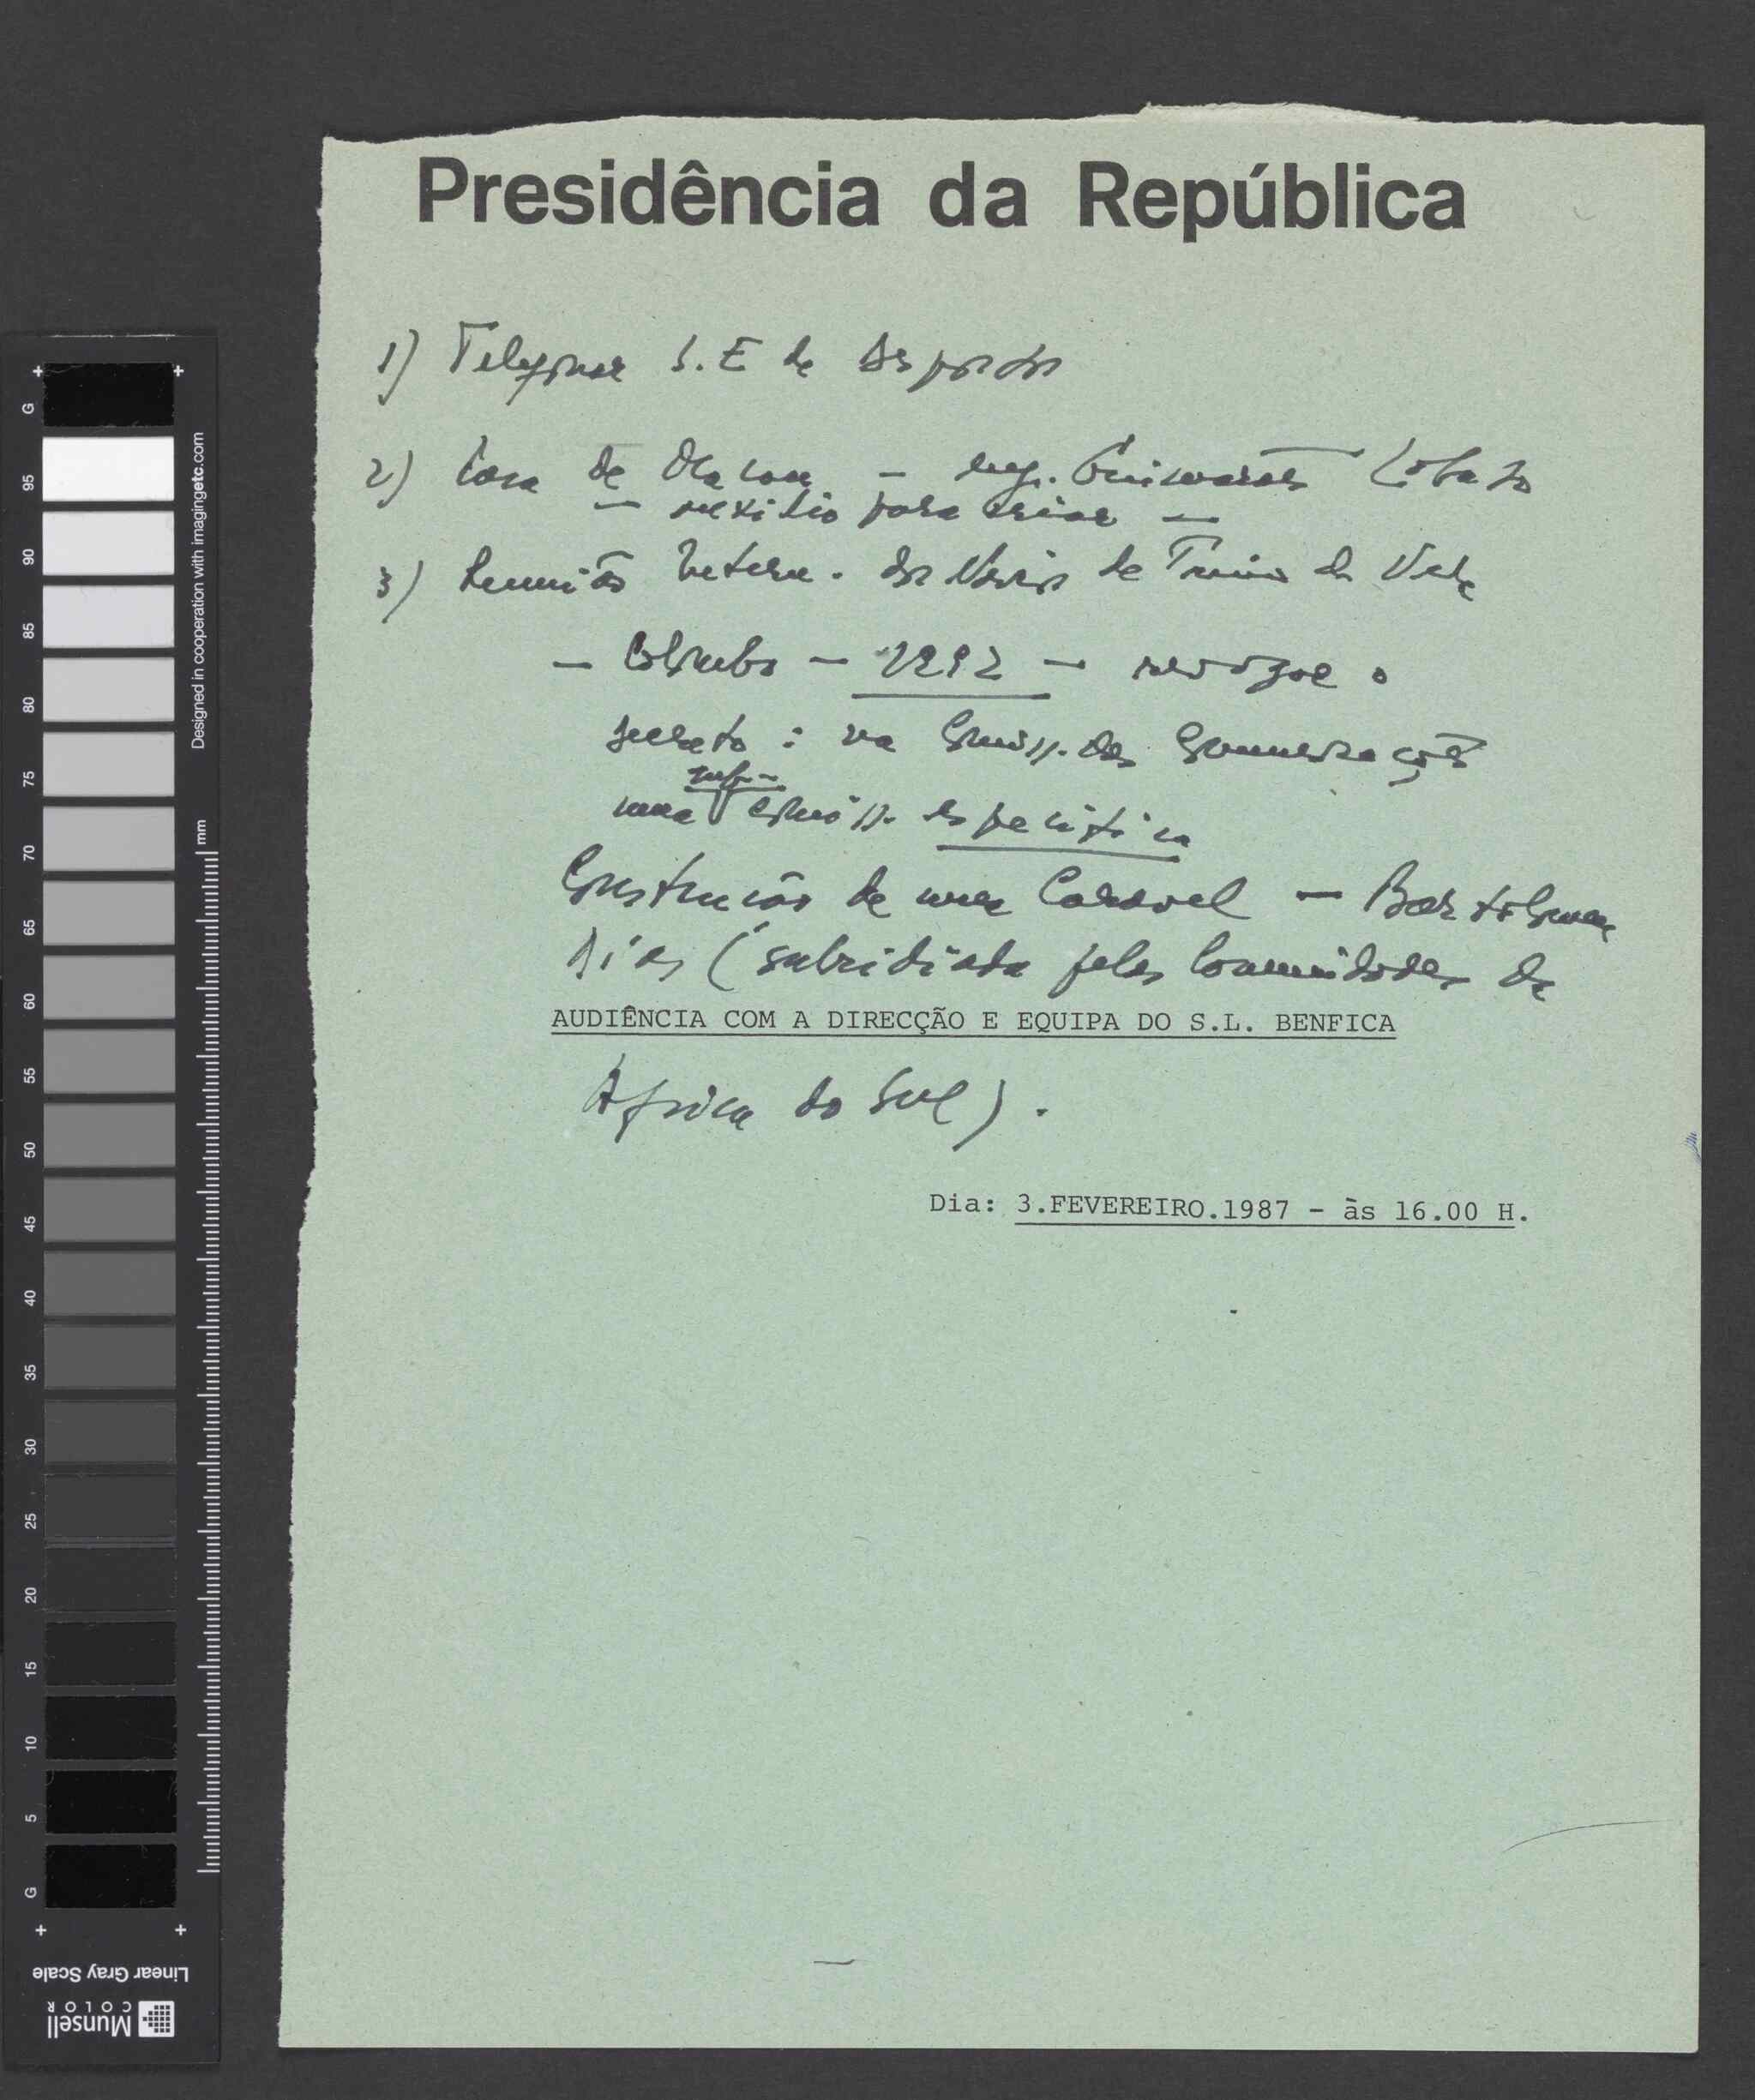 Presidência da República
1) Telefonar S.E de Desportos
2) Casa de Macau - eng. Guimarães Lobato
- auxílio para criar -
3) Reunião Intern. dos Navios de Treino de Vela
- Colombo - 1992 - revogar o
decreto : na Comiss. das Comemorações
uma comiss. específica
Construção de uma Caravel - Bartolomeu
Dias (subsidiada pelas Comunidades da
AUDIÊNCIA COM A DIRECÇÃO E EQUIPA DO S.L. BENFICA
África do Sul).
Dia: 3.FEVEREIRO.1987 - às 16.00 H.
G
95
90
85
80
75
70
65
60
55
50
45
40
35
30
25
20
15
10
5
G
mm
Designed in cooperation with imagingetc.com
Linear Gray Scale
Munsell
COLOR